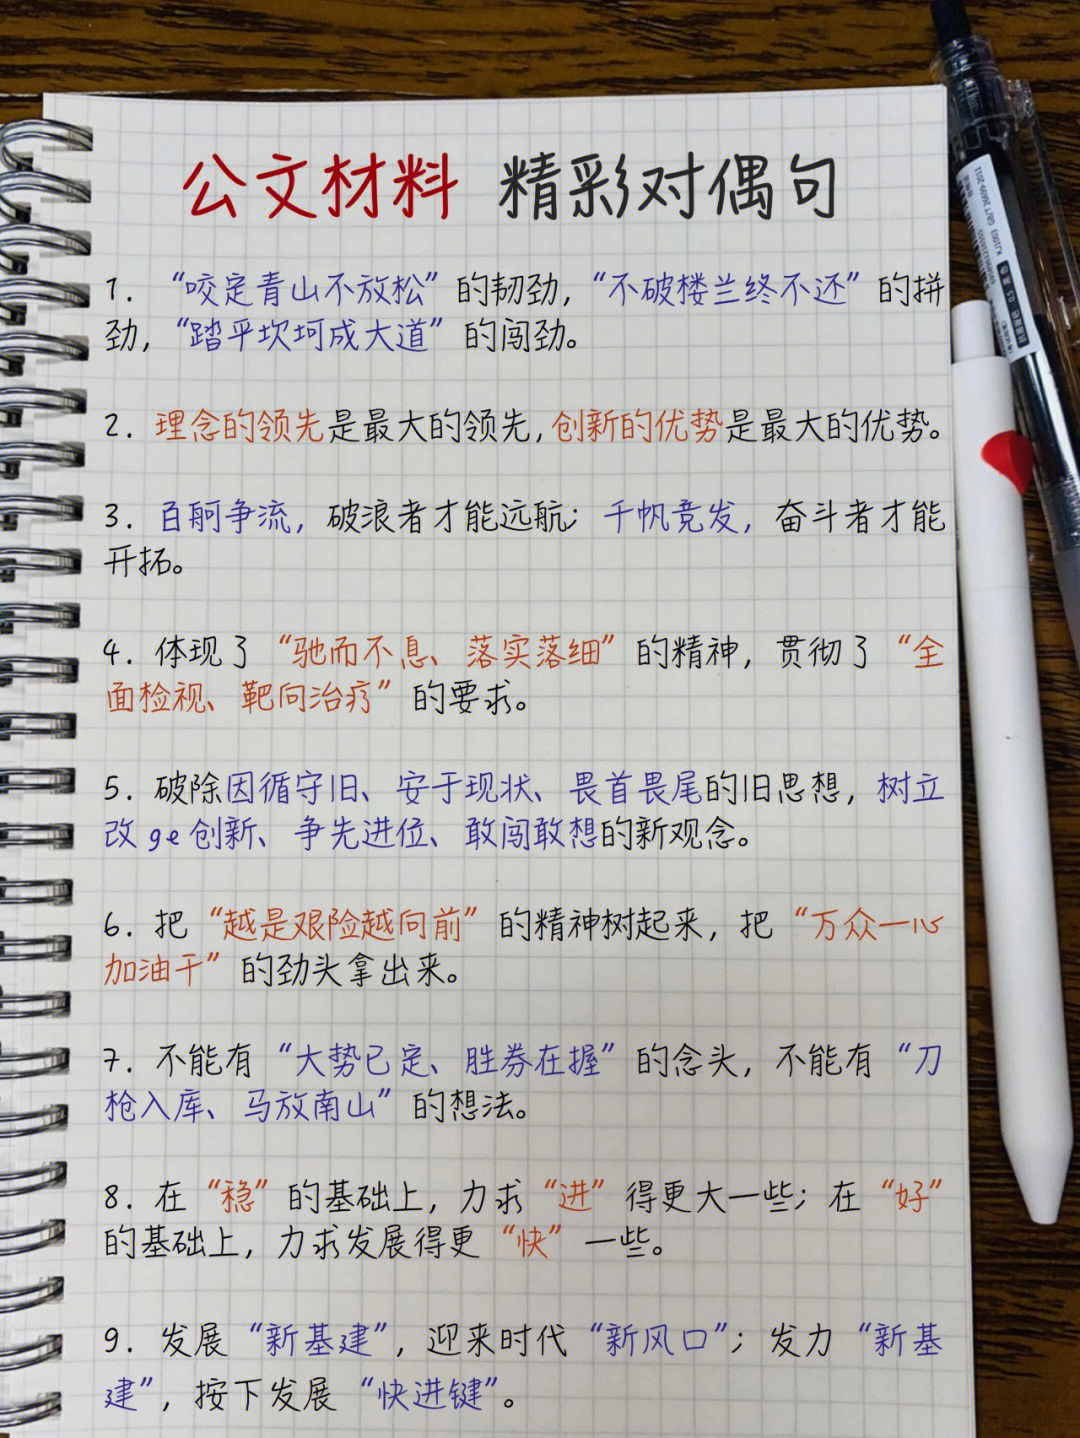 公文材料 精彩对偶句
1. “咬定青山不放松”的韧劲,“不破楼兰终不还”的拼
劲,“踏平坎坷成大道”的闯劲。
2. 理念的领先是最大的领先,创新的优势是最大的优势。
3. 百舸争流,破浪者才能远航;千帆竞发,奋斗者才能
开拓。
4. 体现了“驰而不息、落实落细”的精神,贯彻了“全
面检视、靶向治疗”的要求。
5. 破除因循守旧、安于现状、畏首畏尾的旧思想,树立
改ge创新、争先进位、敢闯敢想的新观念。
6. 把“越是艰险越向前”的精神树起来,把“万众一心
加油干”的劲头拿出来。
7. 不能有“大势已定、胜券在握”的念头,不能有“刀
枪入库、马放南山”的想法。
8. 在“稳”的基础上,力求“进”得更大一些;在“好”
的基础上,力求发展得更“快”一些。
9. 发展“新基建”,迎来时代“新风口”;发力“新基
建”,按下发展“快进键”。